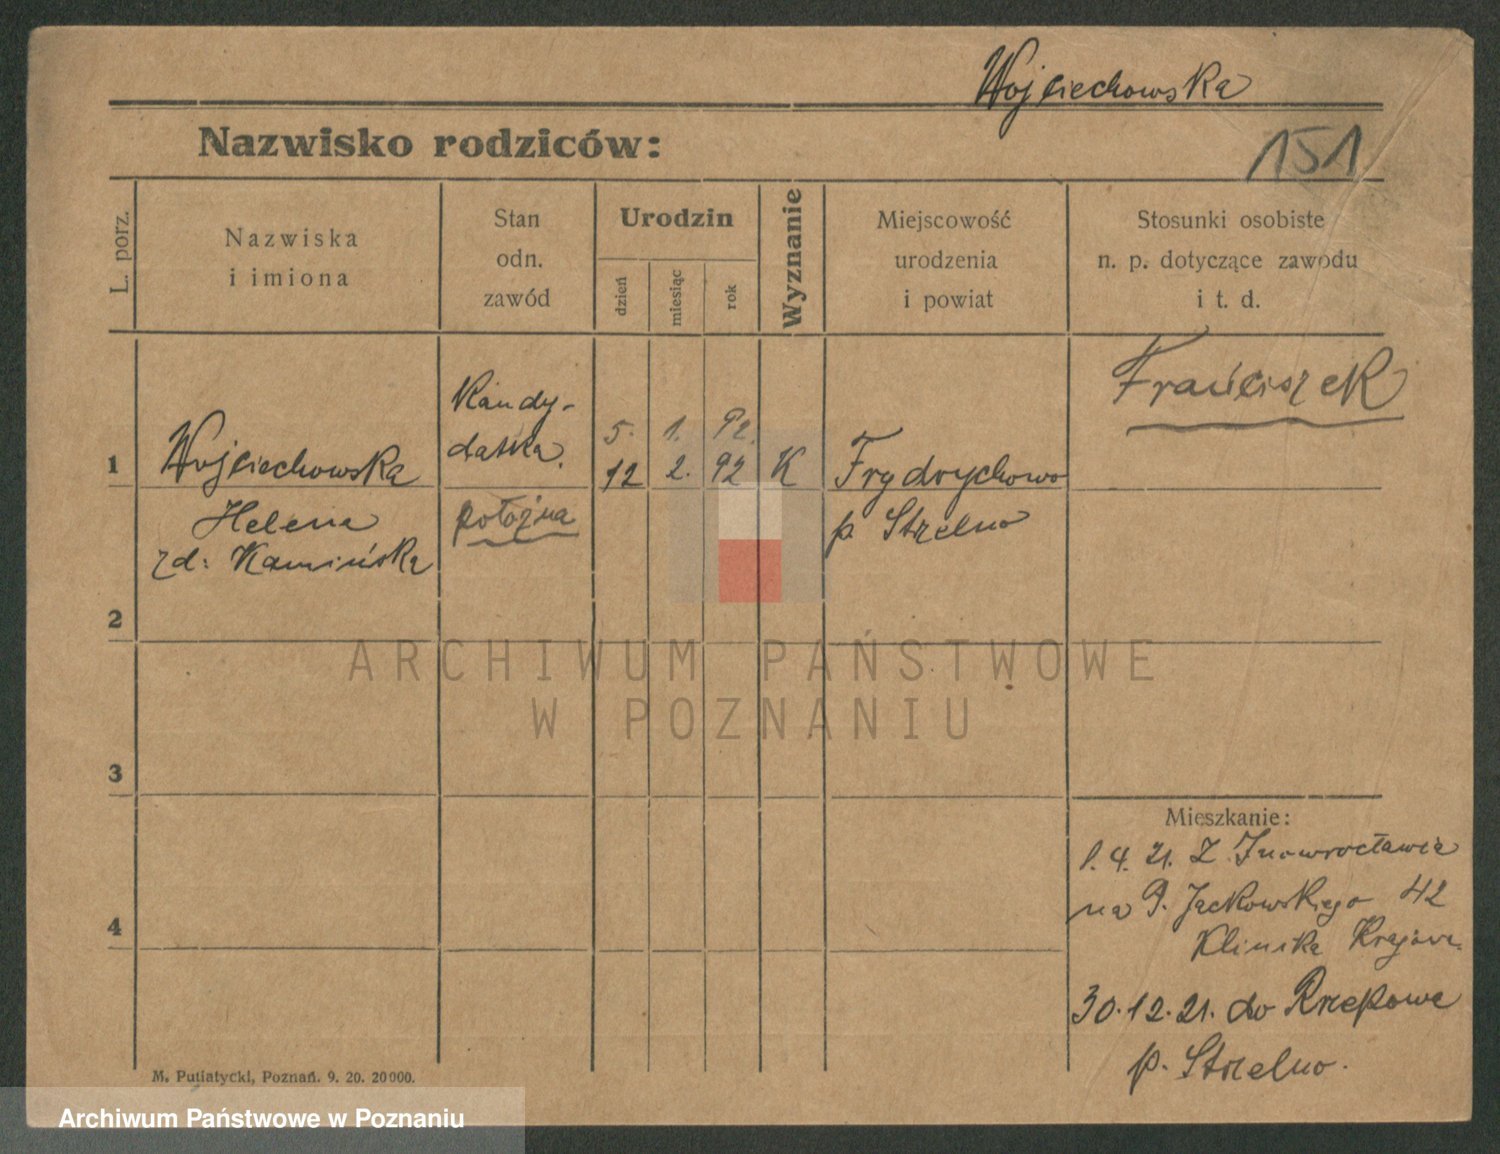 Wojciechowska
Nazwisko rodziców:
151
L. porz.
Nazwiska
i imiona
Stan
odn.
zawód
Urodzin
dzień
miesiąc
rok
Wyznanie
Miejscowość
urodzenia
i powiat
Stosunki osobiste
n. p. dotyczące zawodu
i t. d.
Franciszek
Kandy-
datka.
5. 1. 92.
1 Wojciechowska 12 2. 92 K Frydrychowo
Helena położna p. Strzelno
zd: Kamińska
2
3
4
Mieszkanie:
1.4.21. Z Inowrocławia
na P. Jackowskiego 42
Klinika Krajow.
30.12.21. do Rzepowa
p. Strzelno.
M. Putiatycki, Poznań. 9. 20. 20000.
ARCHIWUM PAŃSTWOWE
W POZNANIU
Archiwum Państwowe w Poznaniu